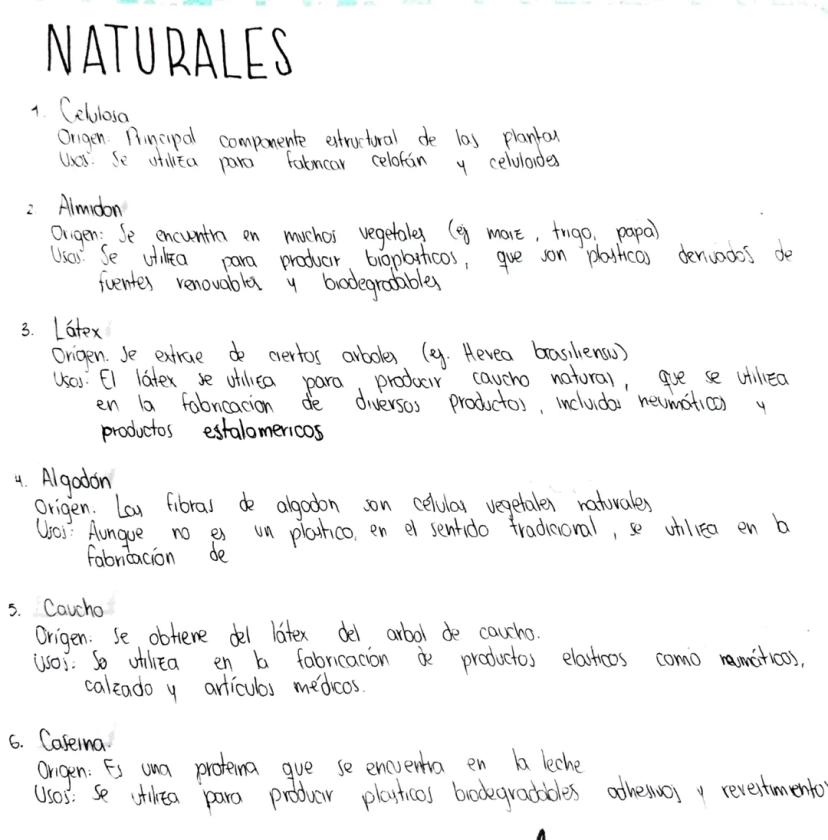 NATURALES
1. Celulosa
Origen: Principal componente estructural de las plantas
Usos: Se utiliza para fabricar celofán y celuloides
2 Almidon
Origen: Se encuentra en muchos vegetales (ej maiz, trigo, papa)
Usos: Se utiliza para producir bioplasticos, que son plasticos derivados de
fuentes renovables y biodegradables
3. Látex
Origen. Se extrae de ciertos arboles (ej. Hevea brasiliensis)
Usos: El látex se utiliza para producir caucho natural, que se utiliza
en la fabricacion de diversos productos, incluidos neumáticos y
productos estalomericos
4. Algodón
Origen: Las fibras de algodon son células vegetales naturales
Usos: Aunque no es un plastico, en el sentido tradicional, se utiliza en la
fabricación de
5. Caucho
Origen: Se obtiene del látex del arbol de caucho.
Usos: Se utiliza en la fabricación de productos elasticos como neumáticos,
calzado y artículos médicos.
6. Caseina.
Origen: Es una proteina que se encuentra en la leche
Usos: Se utiliza para producir plasticos biodegradables adhesivos y revestimento